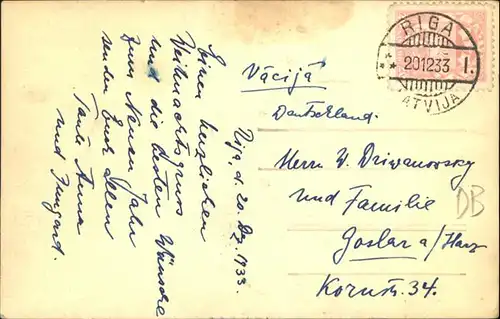 Riga, d. 20. Dez. 1933.
Einen herzlichen
Weihnachtsgruss
und die besten Wünsche
zum Neuen Jahr
senden Euch allen
Tante Anna
und Irmgard.
RIGA
20 12 33 I.
LATVIJA
Vācijā
Deutschland.
Herrn W. Driwanowsky
und Familie
Goslar a/Harz
Kornstr. 34.
DB